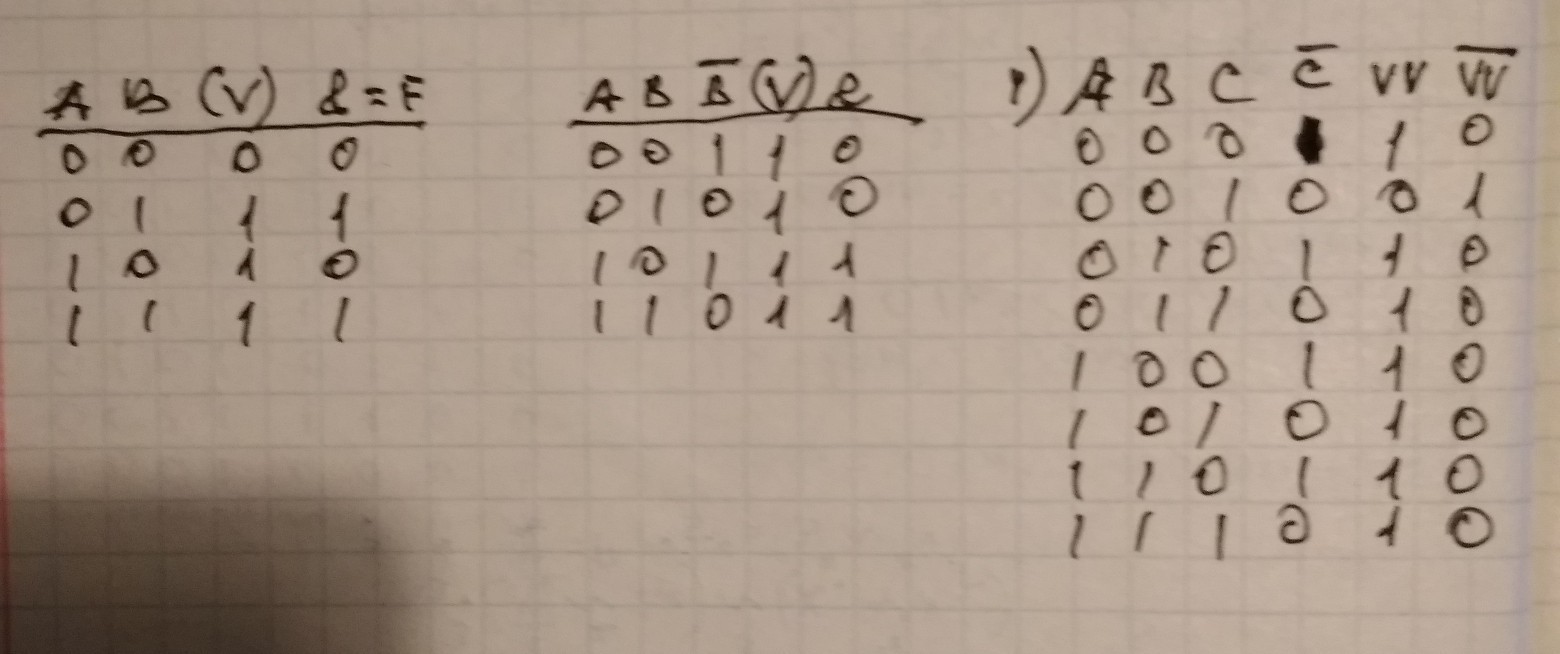 A B (V) & = F
0 0 0 0
0 1 1 1
1 0 1 0
1 1 1 1
A B B̅ (V) &
0 0 1 1 0
0 1 0 1 0
1 0 1 1 1
1 1 0 1 1
1) A B C C̅ VV V̅V̅
0 0 0 1 1 0
0 0 1 0 0 1
0 1 0 1 1 0
0 1 1 0 1 0
1 0 0 1 1 0
1 0 1 0 1 0
1 1 0 1 1 0
1 1 1 0 1 0